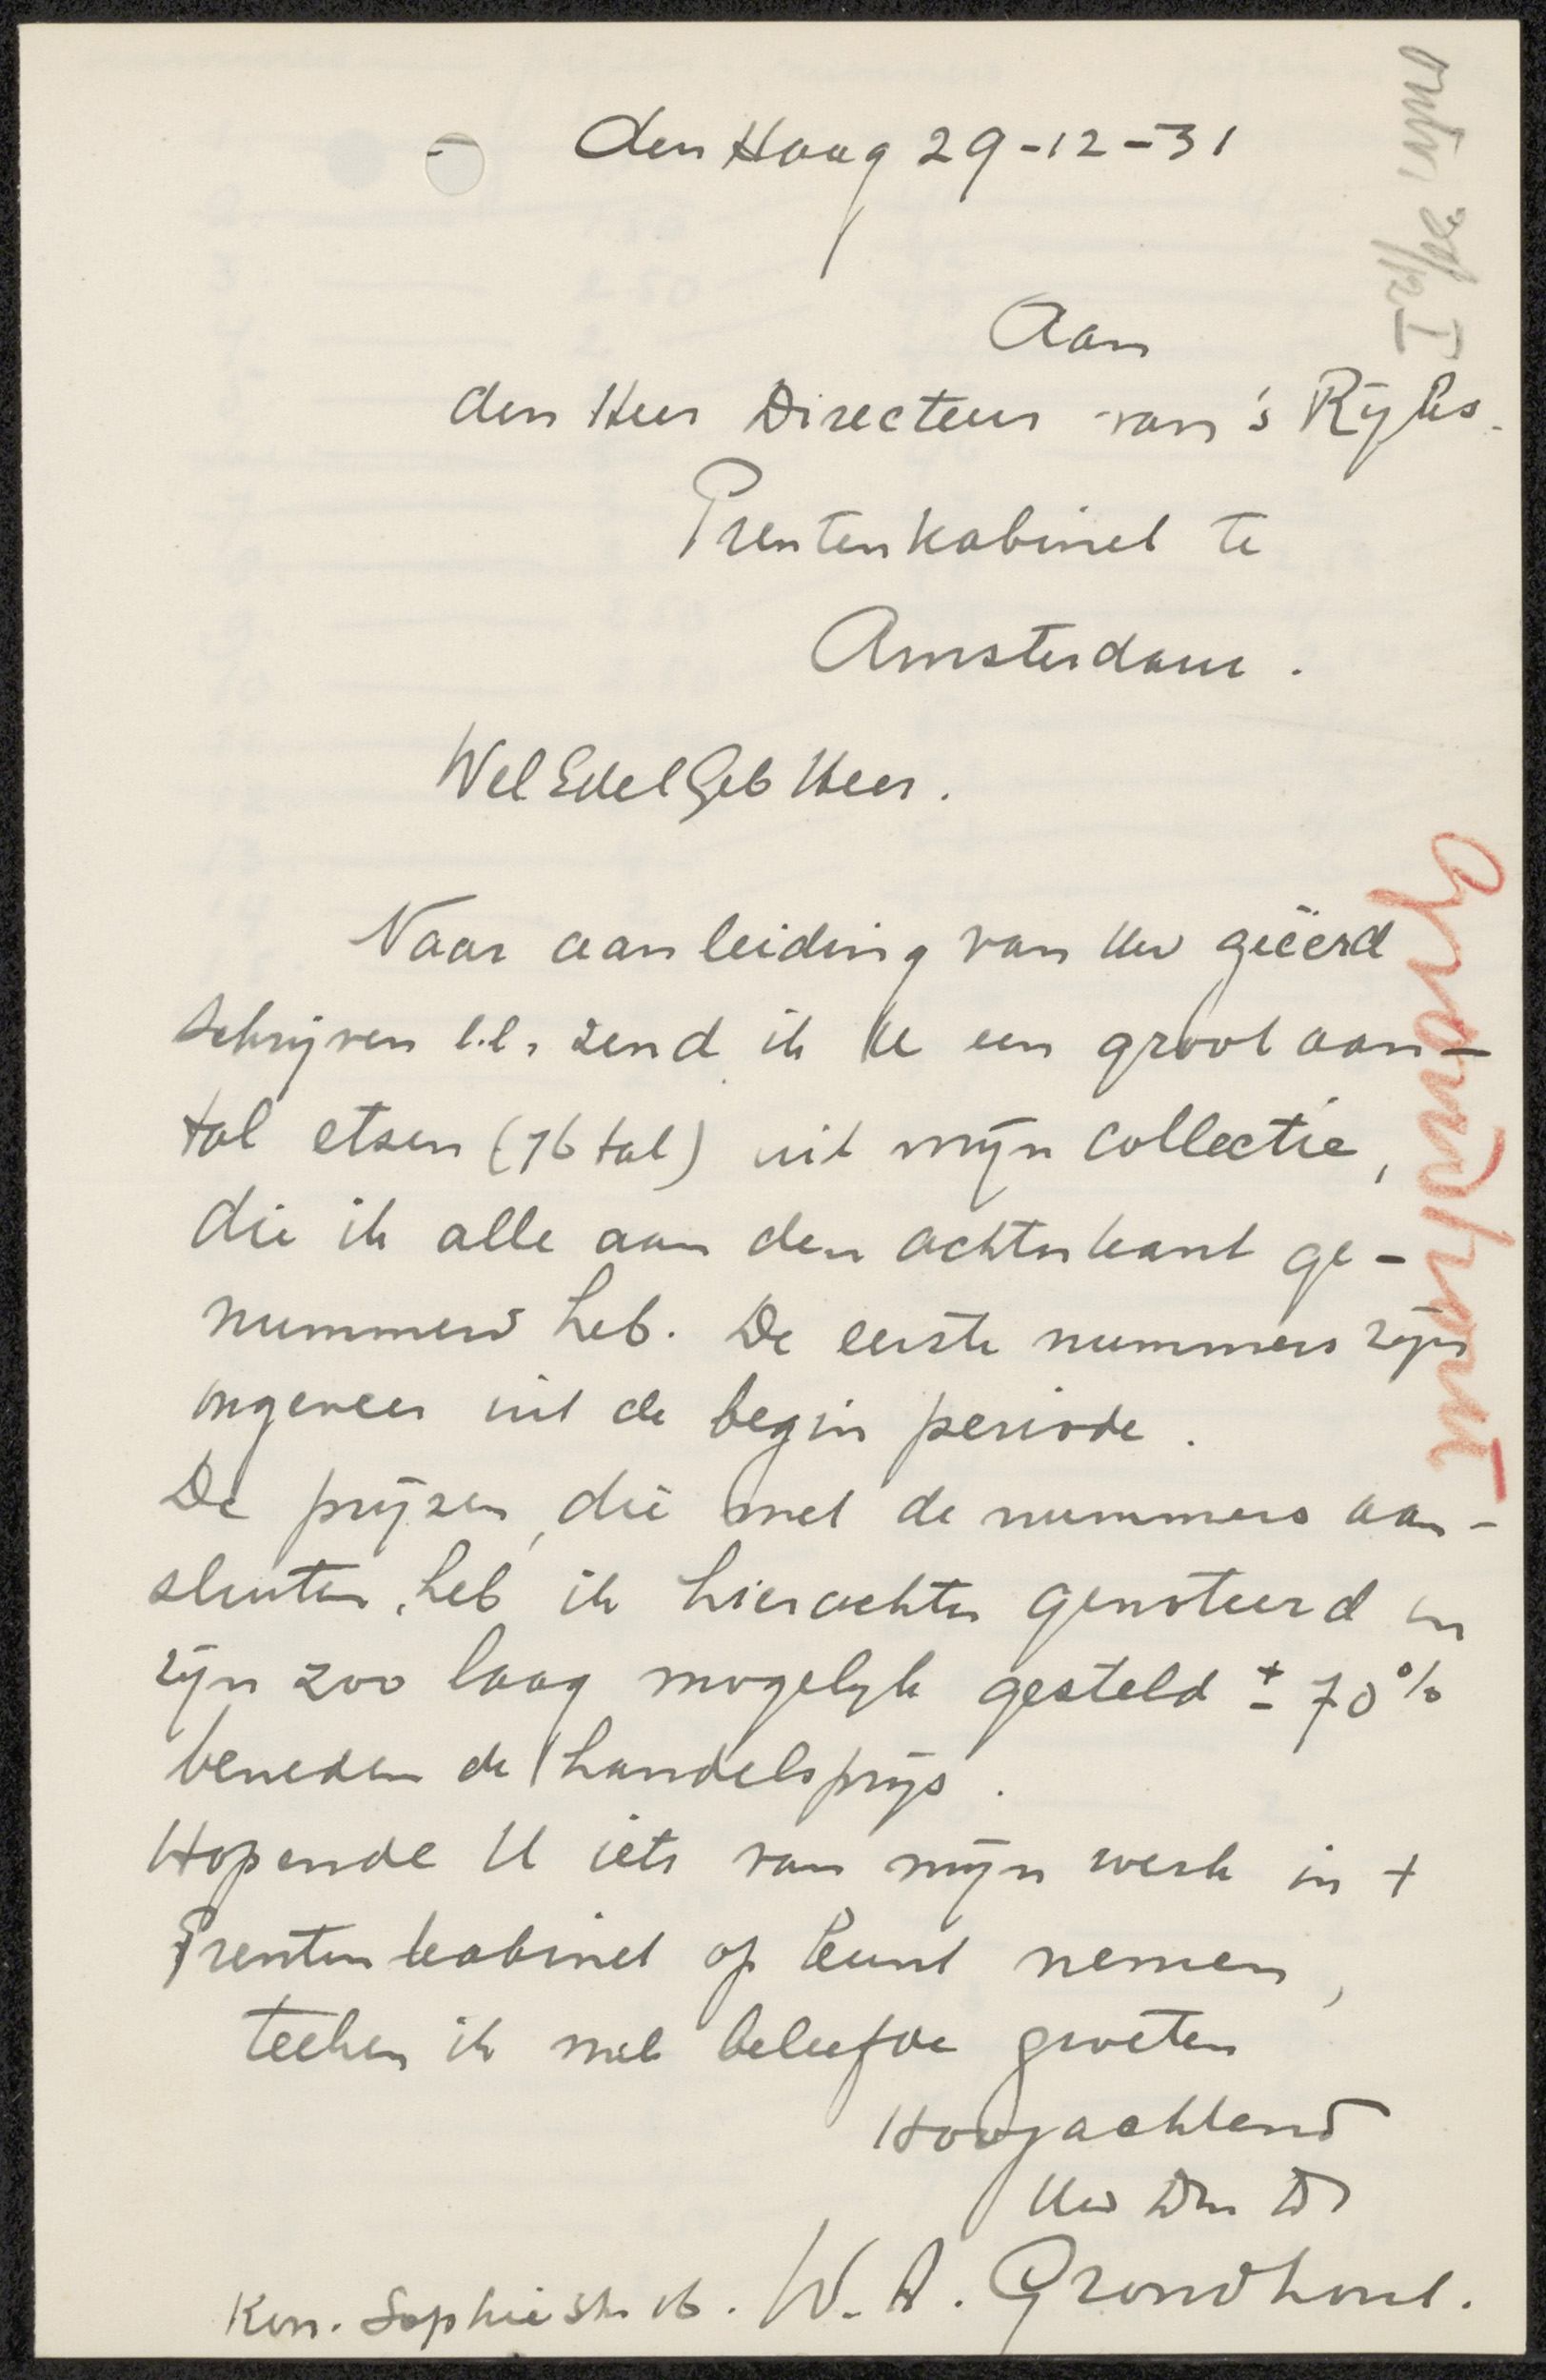 den Haag 29-12-31
Aan
den Heer Directeur van 's Rijks-
Prentenkabinet te
Amsterdam.
WelEdelGeb Heer.
Naar aanleiding van Uw geëerd
schrijven l.l. zend ik U een groot aan-
tal etsen (76 tal) uit mijn collectie,
die ik alle aan den achterkant ge-
nummerd heb. De eerste nummers zijn
ongeveer uit de begin periode.
De prijzen, die met de nummers aan-
sluiten, heb ik hierachter genoteerd en
zijn zoo laag mogelijk gesteld ± 70%
beneden de handelsprijs.
Hopende U iets van mijn werk in t
Prentenkabinet op kunt nemen,
teeken ik met beleefde groeten
Hoogachtend
Uw Dw D
W. A. Grondhout.
Kon. Sophie str 16.
Grondhout